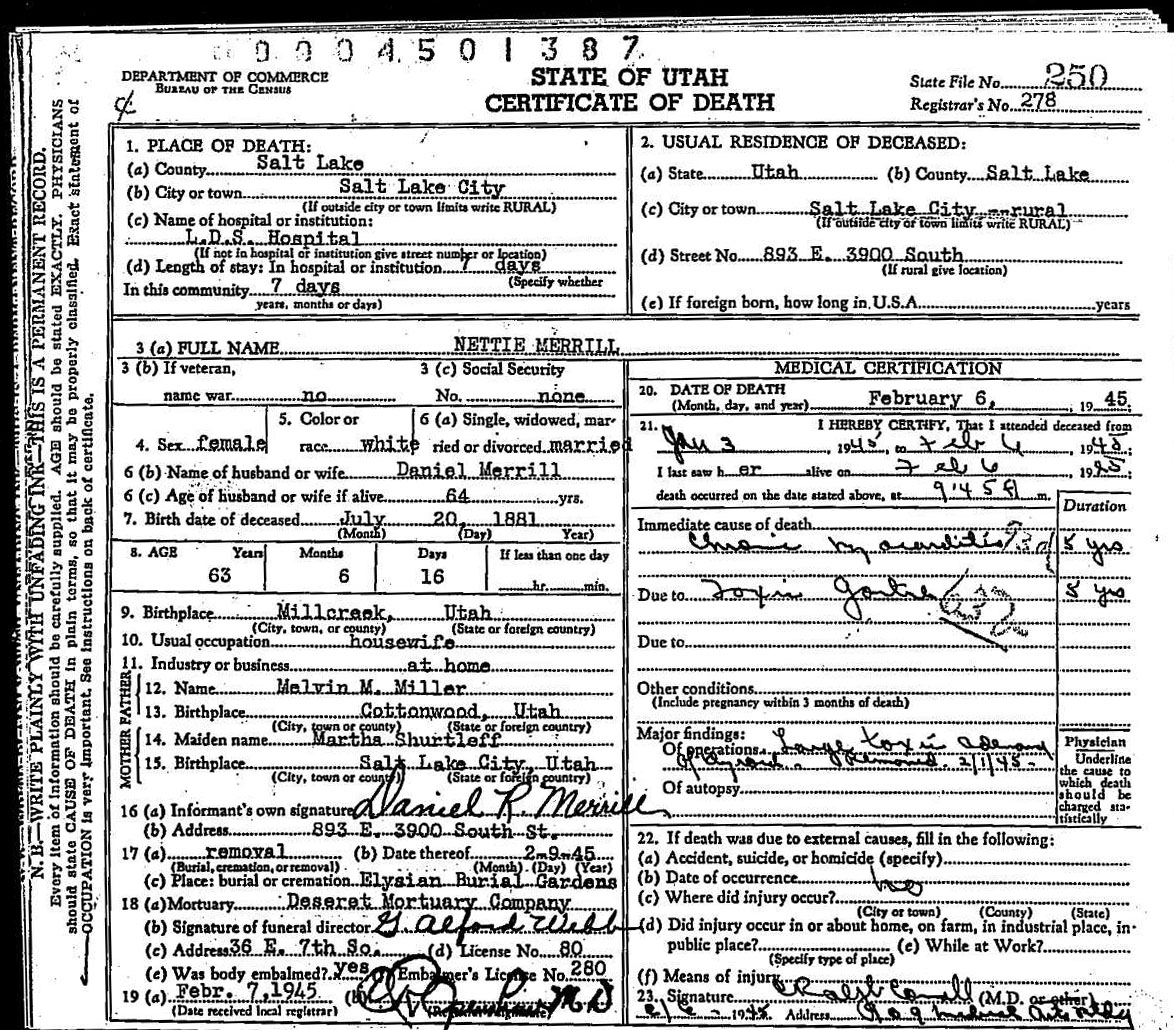 0004501387
DEPARTMENT OF COMMERCE
BUREAU OF THE CENSUS
STATE OF UTAH
CERTIFICATE OF DEATH
State File No. 250
Registrar's No. 278
N. B.—WRITE PLAINLY WITH UNFADING INK—THIS IS A PERMANENT RECORD.
Every item of information should be carefully supplied. AGE should be stated EXACTLY. PHYSICIANS
should state CAUSE OF DEATH in plain terms, so that it may be properly classified. Exact statement of
OCCUPATION is very important. See instructions on back of certificate.
1. PLACE OF DEATH:
(a) County Salt Lake
(b) City or town Salt Lake City
(If outside city or town limits write RURAL)
(c) Name of hospital or institution:
L.D.S. Hospital
(If not in hospital or institution give street number or location)
(d) Length of stay: In hospital or institution 7 days
(Specify whether
In this community 7 days
years, months or days)
2. USUAL RESIDENCE OF DECEASED:
(a) State Utah (b) County Salt Lake
(c) City or town Salt Lake City --rural
(If outside city or town limits write RURAL)
(d) Street No. 893 E. 3900 South
(If rural give location)
(e) If foreign born, how long in U.S.A. years
3 (a) FULL NAME NETTIE MERRILL
3 (b) If veteran, 3 (c) Social Security
name war no No. none
4. Sex female 5. Color or race white 6 (a) Single, widowed, married or divorced married
6 (b) Name of husband or wife Daniel Merrill
6 (c) Age of husband or wife if alive 64 yrs.
7. Birth date of deceased July 20, 1881
(Month) (Day) Year)
8. AGE Years Months Days If less than one day
63 6 16 hr. min.
9. Birthplace Millcreek, Utah
(City, town, or county) (State or foreign country)
10. Usual occupation housewife
11. Industry or business at home
FATHER
12. Name Melvin M. Miller
13. Birthplace Cottonwood, Utah
(City, town or county) (State or foreign country)
MOTHER
14. Maiden name Martha Shurtleff
15. Birthplace Salt Lake City, Utah
(City, town or county) (State or foreign country)
16 (a) Informant's own signature Daniel R. Merrill
(b) Address 893 E. 3900 South St.
17 (a) removal (b) Date thereof 2-9-45
(Burial, cremation, or removal) (Month) (Day) (Year)
(c) Place: burial or cremation Elysian Burial Gardens
18 (a) Mortuary Deseret Mortuary Company
(b) Signature of funeral director G. Alford Webb
(c) Address 36 E. 7th So. (d) License No. 80
(e) Was body embalmed? yes Embalmer's License No. 280
19 (a) Febr. 7, 1945 (b) M D
(Date received local registrar)
MEDICAL CERTIFICATION
20. DATE OF DEATH
(Month, day, and year) February 6, 1945
21. I HEREBY CERTIFY, That I attended deceased from
Jan 3, 1945, to Feb 6, 1945
I last saw her alive on Feb 6 19
death occurred on the date stated above, at 9:45 m.
Duration
Immediate cause of death
Chronic myocarditis 5 yrs
Due to Toxic Goitre 5 yrs
Due to
Other conditions
(Include pregnancy within 3 months of death)
Major findings:
Of operations Large toxic adenoma
of thyroid removed 2/1/45
Of autopsy
Physician
Underline
the cause to
which death
should be
charged sta-
tistically
22. If death was due to external causes, fill in the following:
(a) Accident, suicide, or homicide (specify)
(b) Date of occurrence no
(c) Where did injury occur?
(City or town) (County) (State)
(d) Did injury occur in or about home, on farm, in industrial place, in
public place? (e) While at Work?
(Specify type of place)
(f) Means of injury
23. Signature (M.D. or other)
Address Medical Arts Bldg